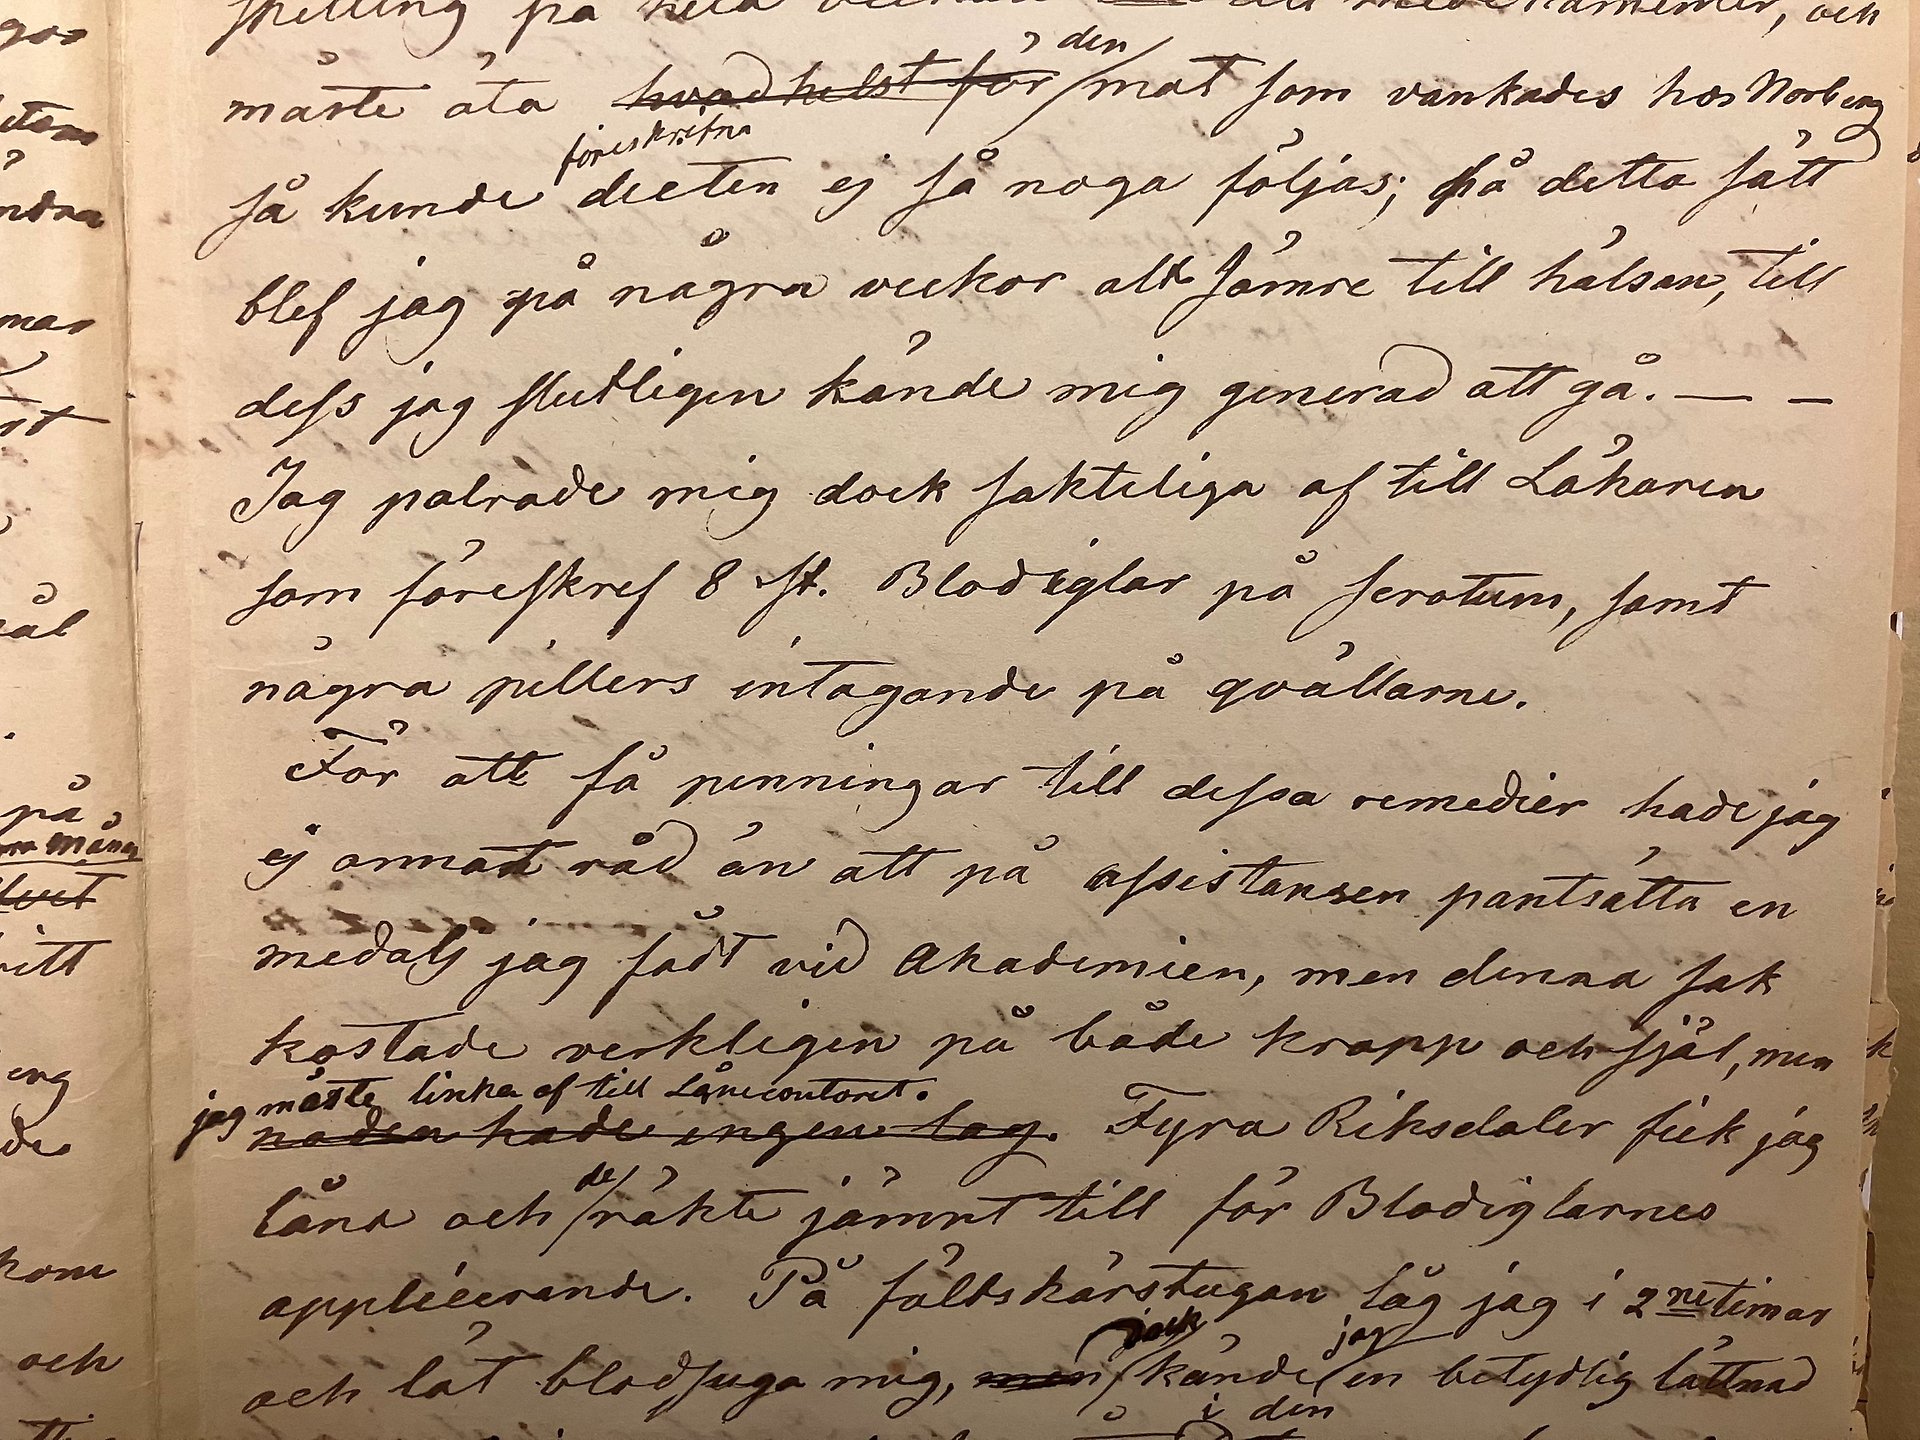 skilling på hela veckan till medikamenter, och
måste äta hvad helst för den mat som vankades hos Norberg
föreskrifna
så kunde dieten ej så noga följas; på detta sätt
blef jag på några veckor allt sämre till hälsan, till
dess jag slutligen kände mig generad att gå. — —
Jag palrade mig dock sakteliga af till Läkaren
som föreskref 8 st. Blodiglar på scrotum, samt
några pillers intagande på qvällarne.
För att få penningar till dessa remedier hade jag
ej annat råd än att på assistansen pantsätta en
medalj jag fådt vid Akademien, men denna sak
kostade verkligen på både kropp och själ, men
jag måste linka af till Lånecontoret.
nöden hade ingen lag. Fyra Riksdaler fick jag
låna och de räkte jämnt till för Blodiglarnes
applicerande. På fältskärstugan låg jag i 2ne timar
och lät blodsuga mig, men kände jag en betydlig lättnad
i den